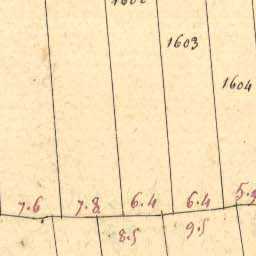 1603
1604
7.6 7.8 6.4 6.4
8.5 9.5